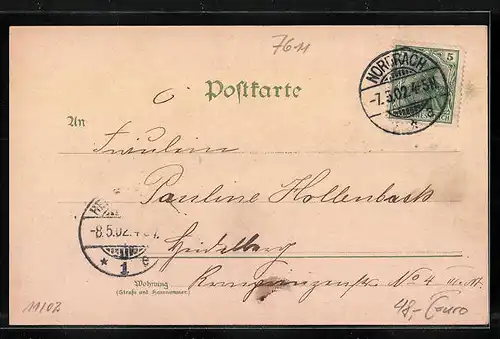 76 M
Postkarte
NORDRACH
-7.5.02.4-5N.
5
An
Fräulein
Pauline Hollenbach
-8.5.02.
* 1 e
Heidelberg
Wohnung
(Straße und Hausnummer)
No 4
11102
48,- Euro